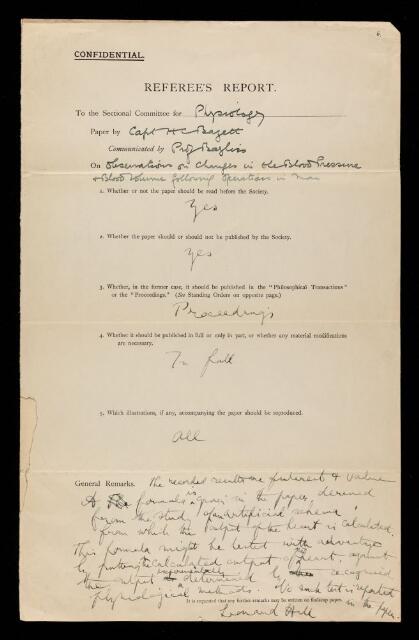 6.
CONFIDENTIAL.
REFEREE'S REPORT.
To the Sectional Committee for Physiology
Paper by Capt H C Bazett
Communicated by Prof Bayliss
On Observations on Changes in the Blood Pressure
& Blood Volume following Operations in Man
1. Whether or not the paper should be read before the Society.
Yes
2. Whether the paper should or should not be published by the Society.
Yes
3. Whether, in the former case, it should be published in the "Philosophical Transactions"
or the "Proceedings." (See Standing Orders on opposite page.)
Proceedings
4. Whether it should be published in full or only in part, or whether any material modifications
are necessary.
In full
5. Which illustrations, if any, accompanying the paper should be reproduced.
All
General Remarks. The recorded results are of interest & value
A formula is given in the paper, derived
from the study of an artificial schema,
from which the output of the heart is calculated.
This formula might be tested with advantage
by putting the calculated output of the heart, against
the output experimentally determined by recognised
physiological methods. No such test is reported
in the paper.
It is requested that any further remarks may be written on foolscap paper.
Leonard Hill